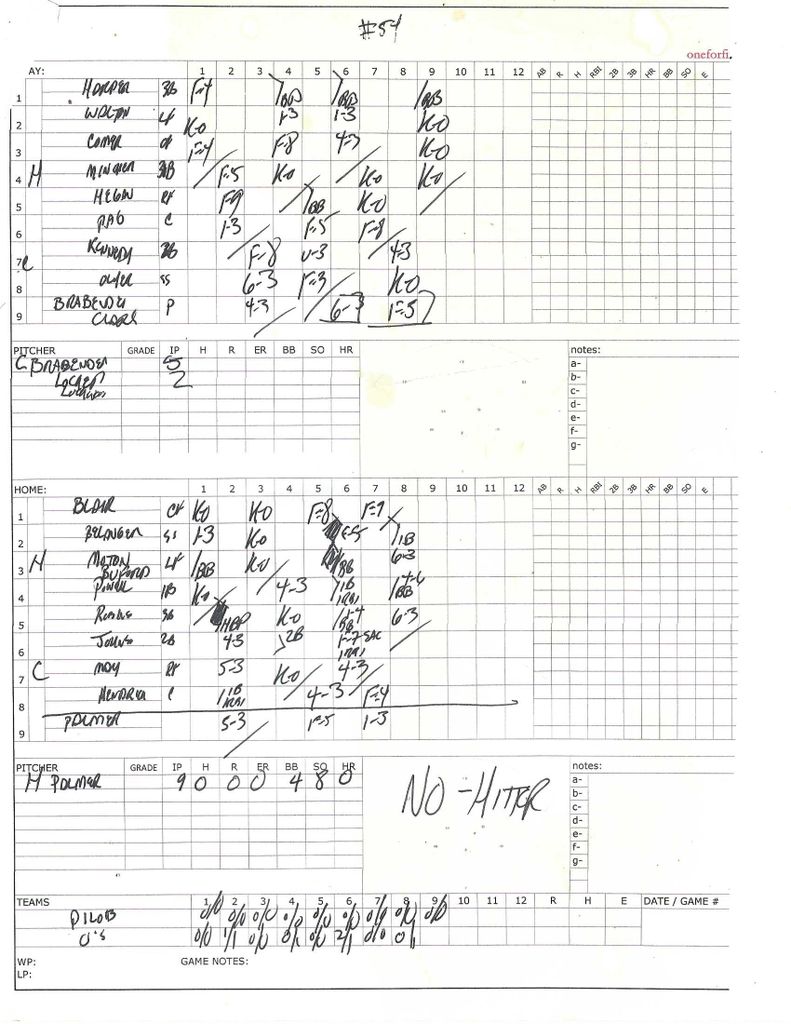 #54
oneforfi.
AY: 1 2 3 4 5 6 7 8 9 10 11 12 AB R H RBI 2B 3B HR BB SO E
1 HARPER 3B F-4 BB BB BB
2 WALTON LF K-O 1-3 1-3 K-O
3 COMER CF F-4 F-8 4-3 K-O
4 H MINCHER F-5 K-O K-O K-O
5 HEGAN RF F-9 BB K-O
6 C 1-3 F-5 F-8
7 KENNEDY F-8 U-3 4-3
8 OYLER SS 6-3 F-3 K-O
9 BRABENDER P 4-3 6-3 F-5
CLARK
PITCHER GRADE IP H R ER BB SO HR notes:
C BRABENDER 5 a-
LOCKER 2 b-
c-
d-
e-
f-
g-
HOME: 1 2 3 4 5 6 7 8 9 10 11 12 AB R H RBI 2B 3B HR BB SO E
1 BLAIR CF K-O K-O F-8 F-7
2 BELANGER SS 1-3 K-O F-5 1B
3 H MOTON LF BB K-O BB 6-3
BUFORD
4 POWELL 1B K-O 4-3 1B 1RBI BB 4-6
5 ROBINS 3B HBP K-O BB 1-4 6-3
6 JOHNS 2B 4-3 2B F-7 SAC 1RBI
7 C MAY RF 5-3 K-O 4-3
8 HENDRICKS C 1B 1RBI 4-3 F-4
9 PALMER 5-3 F-5 1-3
PITCHER GRADE IP H R ER BB SO HR notes:
H PALMER 9 0 0 0 4 8 0 a-
NO-HITTER b-
c-
d-
e-
f-
g-
TEAMS 1 2 3 4 5 6 7 8 9 10 11 12 R H E DATE / GAME #
PILOTS 0/0 0/0 0/0 0/0 0/0 0/0 0/0 0/0 0/0
O'S 0/0 1/1 0/0 0/1 0/0 2/1 0/0 0/1
WP: GAME NOTES:
LP: